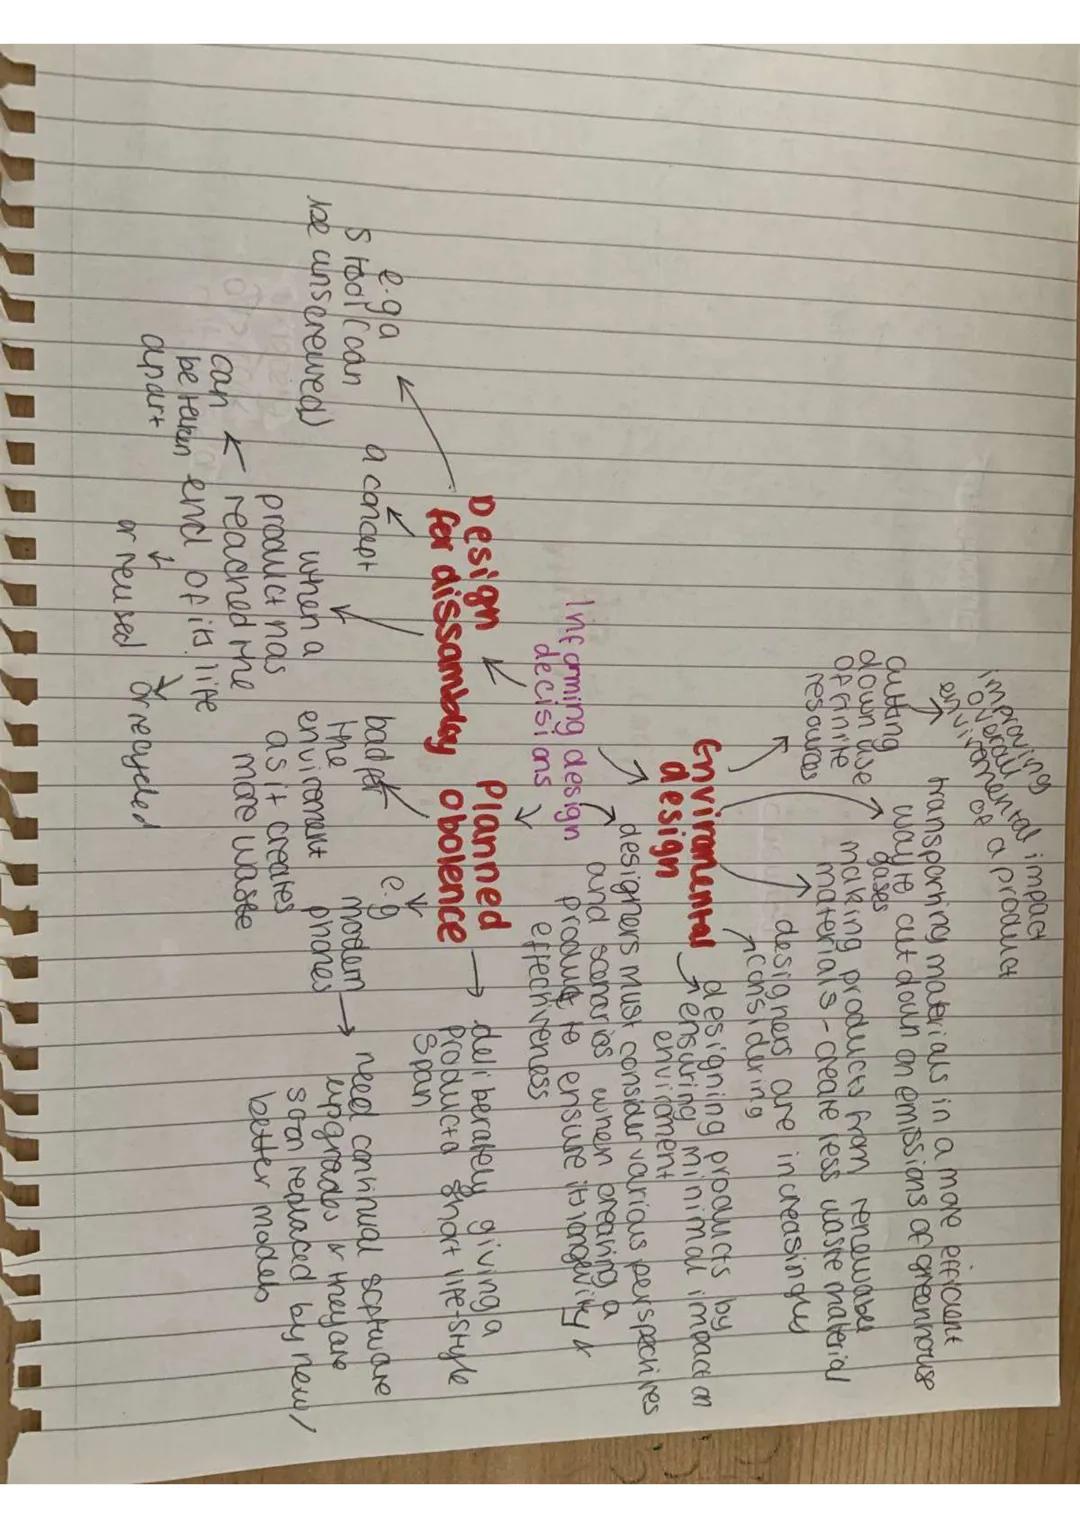 improving
overall
enviromental impact
of a product
cutting
down use
of finite
resources
transporting materials in a more efficient
way to cut down on emissions of greenhouse
gases
making products from renewable
materials - create less waste material
designers are increasingly
considering
Enviromental
design
designing products by
ensuring minimal impact on
enviroment
Informing design
decisions
designers must consider various perspectives
and scenarios when creating a
product to ensure its longevity &
effectiveness
Design
for dissambley
e.g a
stool (can
be unscrewed)
a concept
when a
product has
reached the
end of its life
can
be taken
apart
or reused
or recycled
Planned
obolence
deliberately giving a
product a short life-style
span
bad for
the
enviroment
as it creates
more waste
e.g
modern
phones
need continual software
upgrades & they are
soon replaced by new/
better models